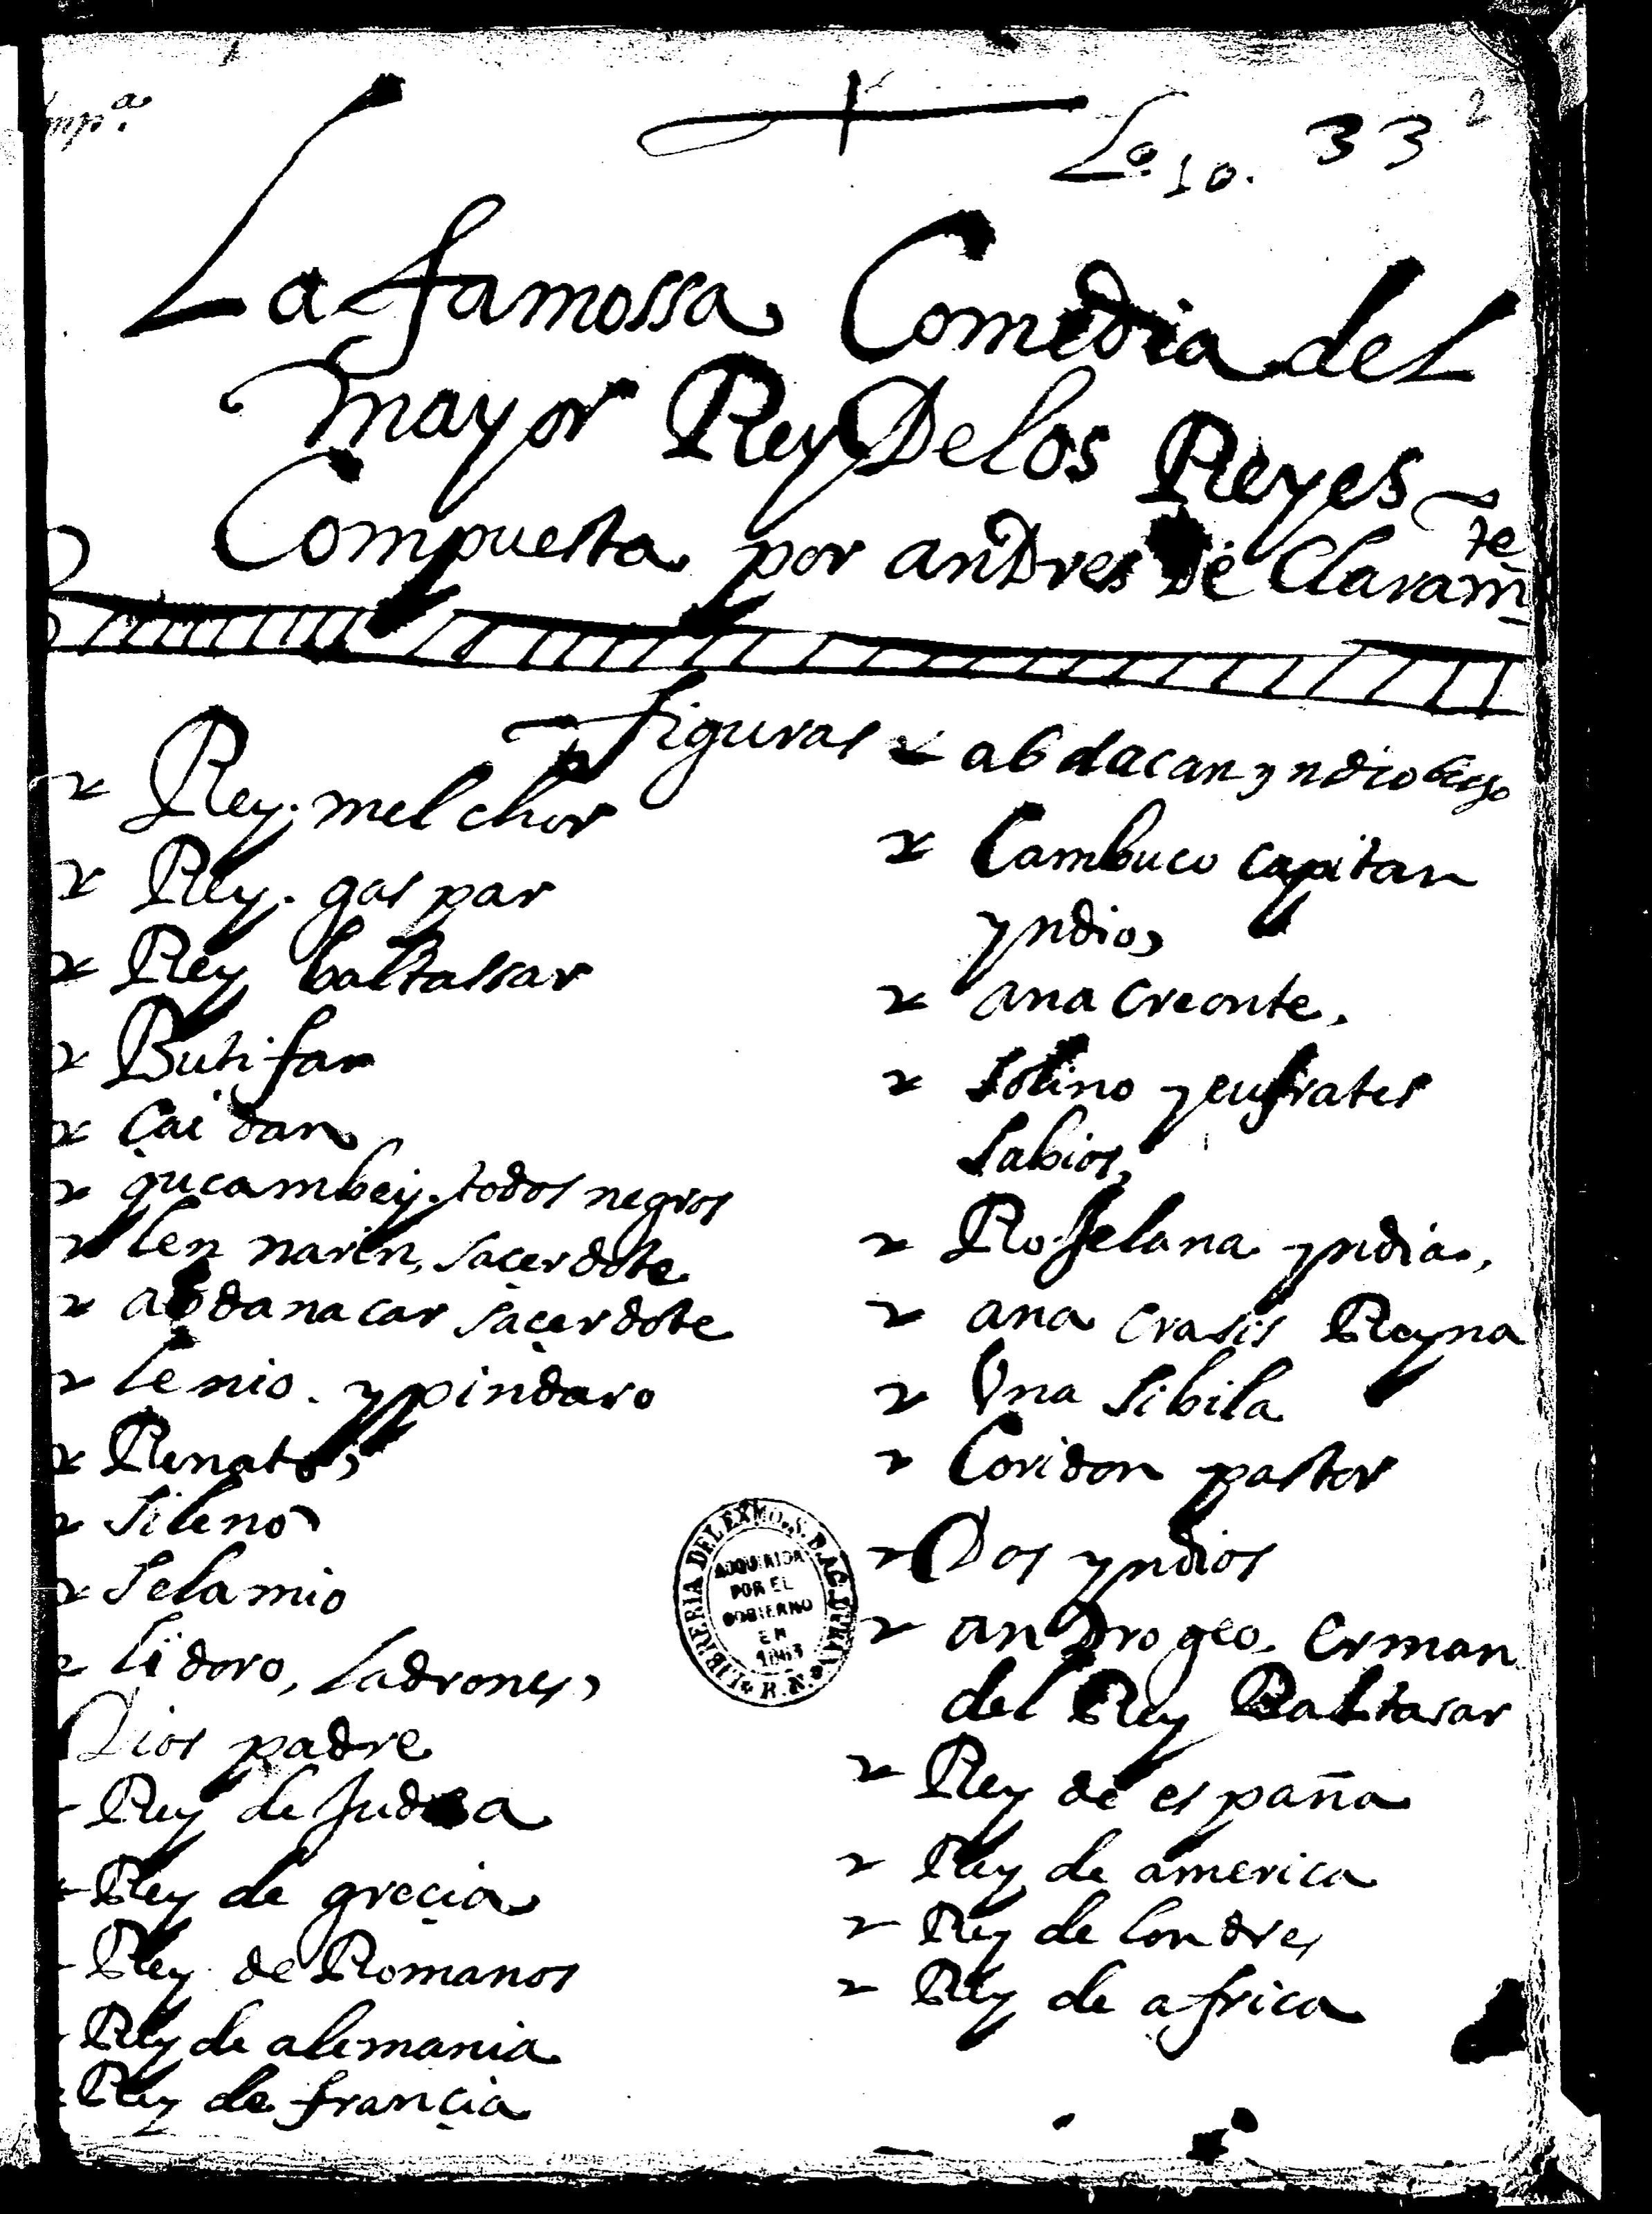 Lo. 10. 33 2
La famossa Comedia del
mayor Rey De los Reyes
Compuesta por anDres De Claram te
figuras
Rey. melchor
Rey. gaspar
Rey baltassar
Butifar
Caidan
qucambey. todos negros
len narin, saçerdote
abdanacar saçerdote
lenio. y pindaro
Renato,
sileno
selamio
lidoro, ladrones,
Dios padre
Rey de Judea
Rey de greçia
Rey de Romanos
Rey de alemania
Rey de françia
abdacan yndio
Cambuco capitan
yndio,
anacreonte.
solino y eufrates
sabios,
Roselana yndia,
ana crasis Reyna
Una sibila
Coridon pastor
Dos yndios
anDrogeo erman
del Rey Baltasar
Rey de españa
Rey de america
Rey de londres
Rey de africa
LIBRERIA DEL EXMO. S. D. AG. DURAN
ADQUIRIDA
POR EL
GOBIERNO
EN
1863
B. N.